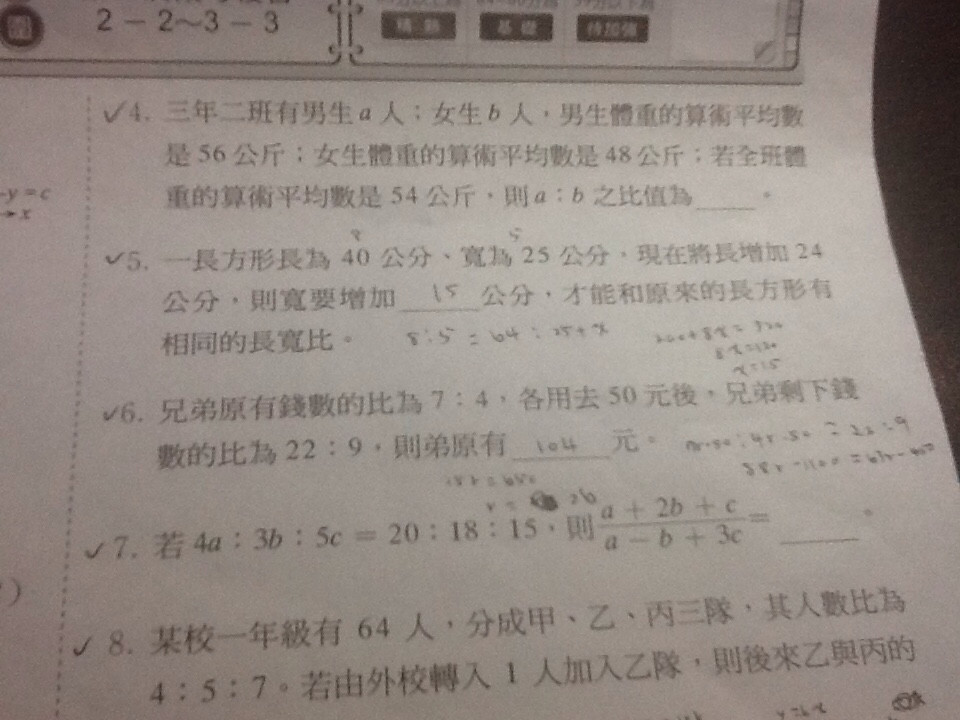 2－2～3－3
精熟 基礎 待加強
✓4. 三年二班有男生a人；女生b人，男生體重的算術平均數
是56公斤；女生體重的算術平均數是48公斤；若全班體
重的算術平均數是54公斤，則a：b之比值為____。
-y = c
→ x
8 5
✓5. 一長方形長為 40 公分、寬為 25 公分，現在將長增加 24
公分，則寬要增加 15 公分，才能和原來的長方形有
相同的長寬比。 8:5 = 64:25+x 200+8x = 320
8x=120
x=15
✓6. 兄弟原有錢數的比為 7：4，各用去 50 元後，兄弟剩下錢
數的比為 22：9，則弟原有 104 元。
✓7. 若 4a：3b：5c = 20：18：15，則 a + 2b + c / a − b + 3c = ____。
✓8. 某校一年級有 64 人，分成甲、乙、丙三隊，其人數比為
4：5：7。若由外校轉入 1 人加入乙隊，則後來乙與丙的